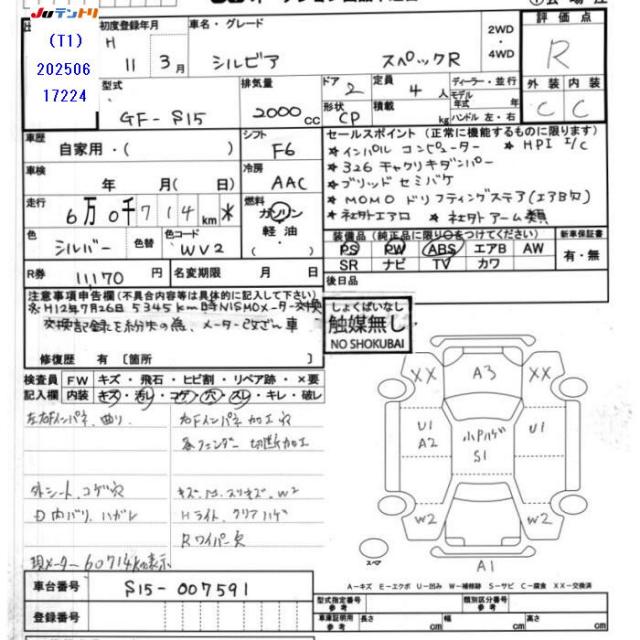 JUテントリ
(T1)
202506
17224
初度登録年月
H 11年 3月
車名・グレード
シルビア スペックR
2WD
・
4WD
評価点
R
外装 内装
C C
型式
GF-S15
排気量
2000cc
ドア 2
形状 CP
定員 4人
積載 kg
ディーラー・並行
モデル年式 年式
ハンドル 左・右
車歴
自家用・( )
シフト
F6
車検
年 月( 日)
冷房
AAC
走行
6万0千714km
燃料
ガソリン
軽油
( )
色
シルバー
色替
色コード
WV2
R券
11,170円
名変期限 月 日
セールスポイント (正常に機能するものに限ります)
*インパル コンピューター *HPI I/C
*326 チャクリキダンパー
*ブリッド セミバケ
*MOMO ドリフティングステア(エアB欠)
*社外エアロ *社外アーム類
装備品(純正品に限り○をつけてください)
PS PW ABS エアB AW
SR ナビ TV カワ
新車保証書
有・無
後日品
注意事項申告欄(不具合内容等は具体的に記入して下さい)
※H12年7月26日 5345km時NISMOメーター交換
交換記録を紛失の為、メーター改ざん車
修復歴 有 〔箇所 〕
しょくばいなし
触媒無し
NO SHOKUBAI
検査員 FW キズ・飛石・ヒビ割・リペア跡・×要
記入欄 内装 キズ・汚レ・コゲ・穴・スレ・キレ・破レ
左右インパネ、曲り、
右Fインパネ加工穴
各フェンダー切断加工
外シート、コゲ穴
D内バリ、ハガレ
キズ、凹、スリキズ、W2
Hライト、クリアハゲ
Rワイパー欠
現メーター60714km表示
XX A3 XX
U1
A2
小凹ハゲ
S1
U1
W2 W2
A1
スペア
A-キズ E-エクボ U-凹み W-補修跡 S-サビ C-腐食 XX-交換済
車台番号 S15-007591
登録番号
型式指定番号 参考
類別区分番号 参考
車庫証明用 参考
長さ cm 幅 cm 高さ cm